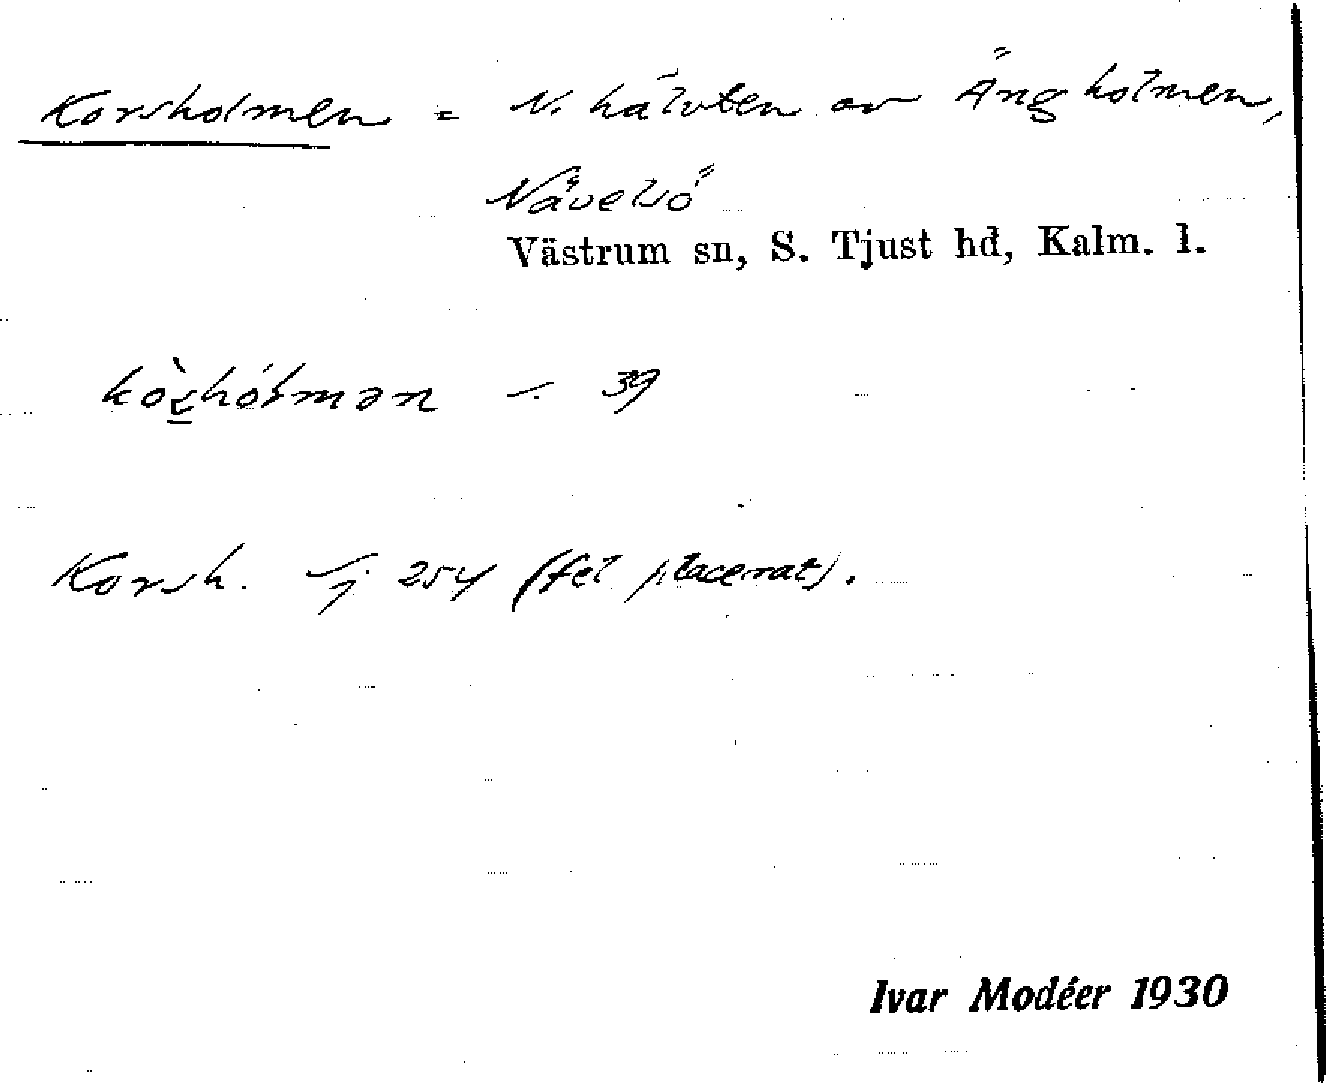 Korsholmen = N. hälvten av Ängholmen,
Nävelsö
Västrum sn, S. Tjust hd, Kalm. l.
39
Korsh. Sj. 254 (fel placerat).
Ivar Modéer 1930